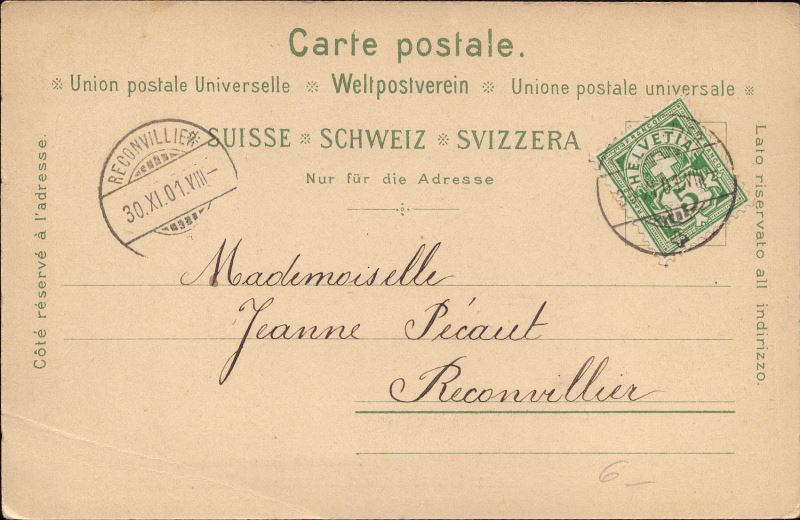 Carte postale.
※ Union postale Universelle ※ Weltpostverein ※ Unione postale universale ※
※ SUISSE ※ SCHWEIZ ※ SVIZZERA
Nur für die Adresse
RECONVILLIER
30.XI.01.VIII—
HELVETIA
5
Côté réservé à l'adresse.
Lato riservato all indirizzo.
Mademoiselle
Jeanne Pécaut
Reconvillier
6—